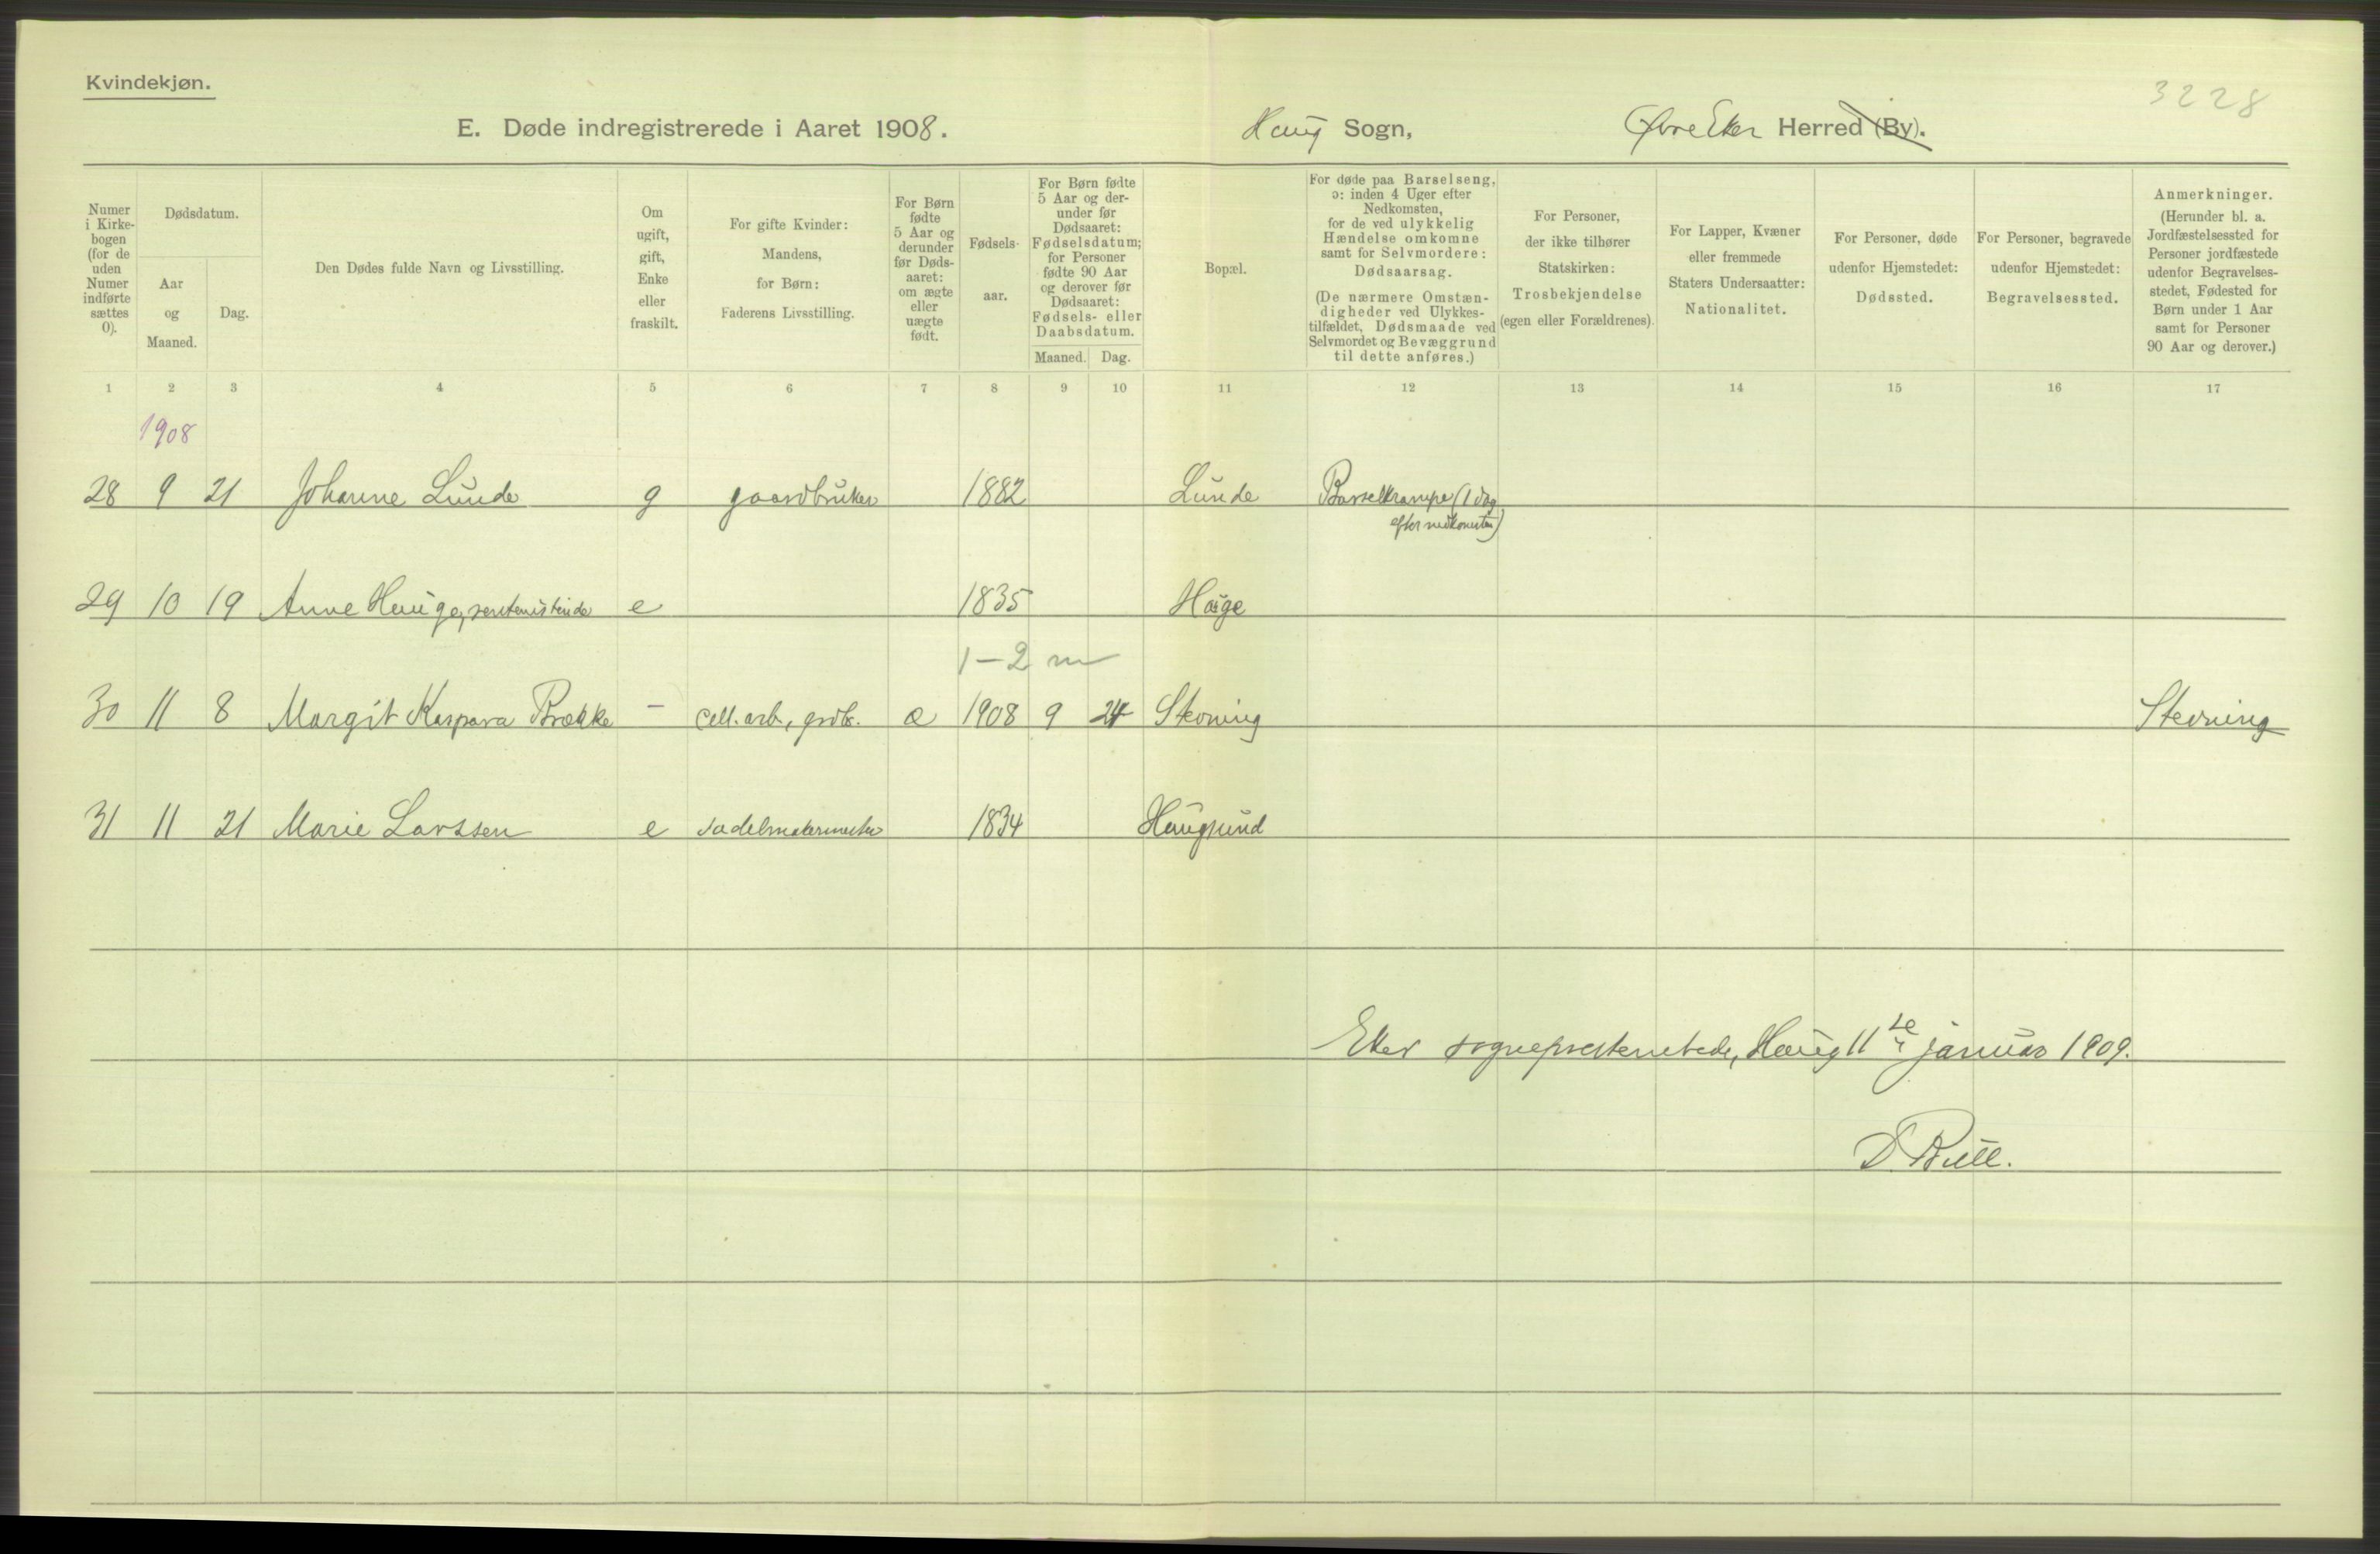 Kvindekjøn.
3228
E. Døde indregistrerede i Aaret 1908. Haug Sogn, Øvre Eker Herred (By).
Numer i Kirke-bogen (for de uden Numer indførte sættes 0).
Dødsdatum.
Aar og Maaned.
Dag.
Den Dødes fulde Navn og Livsstilling.
Om ugift, gift, Enke eller fraskilt.
For gifte Kvinder: Mandens, for Børn: Faderens Livsstilling.
For Børn fødte 5 Aar og derunder før Døds-aaret: om ægte eller uægte født.
Fødsels-aar.
For Børn fødte 5 Aar og der-under før Dødsaaret: Fødselsdatum; for Personer fødte 90 Aar og derover før Dødsaaret: Fødsels- eller Daabsdatum.
Maaned. Dag.
Bopæl.
For døde paa Barselseng, ɔ: inden 4 Uger efter Nedkomsten, for de ved ulykkelig Hændelse omkomne samt for Selvmordere: Dødsaarsag. (De nærmere Omstæn-digheder ved Ulykkes-tilfældet, Dødsmaade ved Selvmordet og Bevæggrund til dette anføres.)
For Personer, der ikke tilhører Statskirken: Trosbekjendelse (egen eller Forældrenes).
For Lapper, Kvæner eller fremmede Staters Undersaatter: Nationalitet.
For Personer, døde udenfor Hjemstedet: Dødssted.
For Personer, begravede udenfor Hjemstedet: Begravelsessted.
Anmerkninger. (Herunder bl. a. Jordfæstelsessted for Personer jordfæstede udenfor Begravelses-stedet, Fødested for Børn under 1 Aar samt for Personer 90 Aar og derover.)
1 2 3 4 5 6 7 8 9 10 11 12 13 14 15 16 17
1908
28 9 21 Johanne Lunde g gaardbruker 1882 Lunde Barselkrampe (1 dag
efter nedkomsten)
29 10 19 Anne Hauge, e 1835 Hauge
1-2 m
30 11 8 Margit Kaspara Brække - cell. arb., grdbr. æ 1908 9 24 Stevning Stevning
31 11 21 Marie Larssen e sadelmakermester 1834 Haugsund
Eker sogneprestembede, Haug 11te januar 1909.
D. Bull.